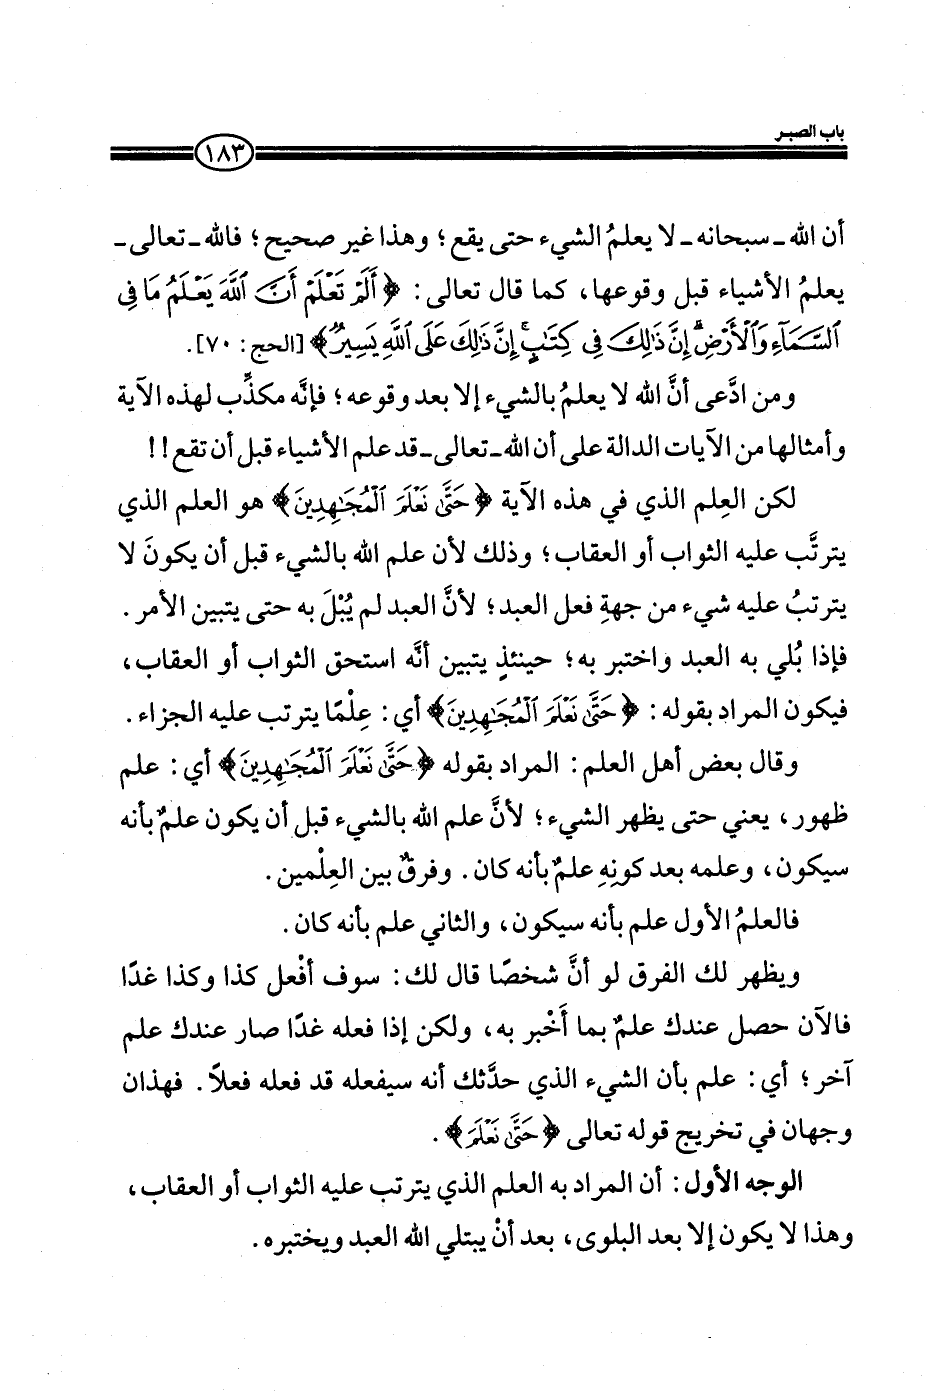 باب الصبر
١٨٣
أن الله ـ سبحانه ـ لا يعلمُ الشيء حتى يقع؛ وهذا غير صحيح؛ فالله ـ تعالى ـ
يعلمُ الأشياء قبل وقوعها، كما قال تعالى: ﴿ أَلَمْ تَعْلَمْ أَنَّ ٱللَّهَ يَعْلَمُ مَا فِى
ٱلسَّمَآءِ وَٱلْأَرْضِ ۗ إِنَّ ذَٰلِكَ فِى كِتَٰبٍ ۚ إِنَّ ذَٰلِكَ عَلَى ٱللَّهِ يَسِيرٌ ﴾ [الحج: ٧٠].
ومن ادَّعى أنَّ الله لا يعلمُ بالشيء إلا بعد وقوعه؛ فإنَّه مكذِّب لهذه الآية
وأمثالها من الآيات الدالة على أن الله ـ تعالى ـ قد علم الأشياء قبل أن تقع!!
لكن العِلم الذي في هذه الآية ﴿ حَتَّىٰ نَعْلَمَ ٱلْمُجَٰهِدِينَ ﴾ هو العلم الذي
يترتَّب عليه الثواب أو العقاب؛ وذلك لأن علم الله بالشيء قبل أن يكونَ لا
يترتبُ عليه شيء من جهةِ فعل العبد؛ لأنَّ العبد لم يُبْلَ به حتى يتبين الأمر.
فإذا بُلي به العبد واختبر به؛ حينئذٍ يتبين أنَّه استحق الثواب أو العقاب،
فيكون المراد بقوله: ﴿ حَتَّىٰ نَعْلَمَ ٱلْمُجَٰهِدِينَ ﴾ أي: عِلْمًا يترتب عليه الجزاء.
وقال بعض أهل العلم: المراد بقوله ﴿ حَتَّىٰ نَعْلَمَ ٱلْمُجَٰهِدِينَ ﴾ أي: علم
ظهور، يعني حتى يظهر الشيء؛ لأنَّ علم الله بالشيء قبل أن يكون علمٌ بأنه
سيكون، وعلمه بعد كونِهِ علمٌ بأنه كان. وفرقٌ بين العِلْمين.
فالعلمُ الأول علم بأنه سيكون، والثاني علم بأنه كان.
ويظهر لك الفرق لو أنَّ شخصًا قال لك: سوف أفْعل كذا وكذا غدًا
فالآن حصل عندك علمٌ بما أَخْبر به، ولكن إذا فعله غدًا صار عندك علم
آخر؛ أي: علم بأن الشيء الذي حدَّثك أنه سيفعله قد فعله فعلاً. فهذان
وجهان في تخريج قوله تعالى ﴿ حَتَّىٰ نَعْلَمَ ﴾.
الوجه الأول: أن المراد به العلم الذي يترتب عليه الثواب أو العقاب،
وهذا لا يكون إلا بعد البلوى، بعد أنْ يبتلي الله العبد ويختبره.